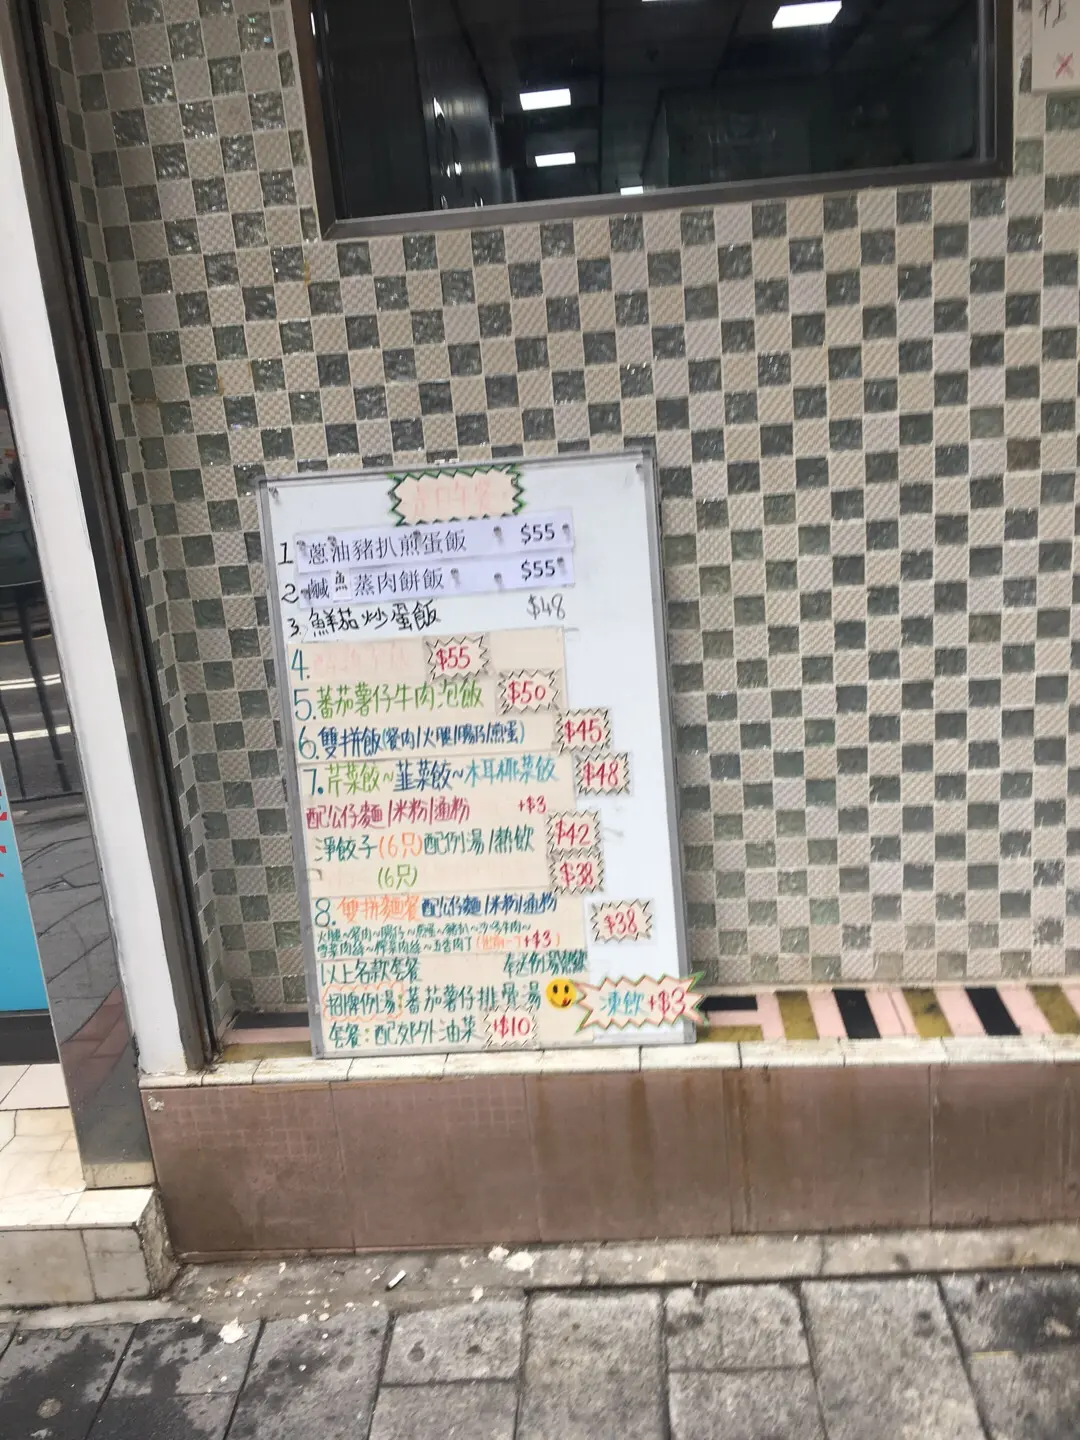 1 蔥油豬扒煎蛋飯 $55
2 鹹魚蒸肉餅飯 $55
3. 鮮茄炒蛋飯 $48
4. $55
5. 蕃茄薯仔牛肉泡飯 $50
6. 雙拼飯(餐肉/火腿/腸仔/煎蛋) $45
7. 芹菜餃~韮菜餃~木耳椰菜餃 $48
配公仔麵/米粉/通粉 +$3
淨餃子(6只)配例湯/熱飲 $42
(6只) $38
8. 雙拼麵餐配公仔麵/米粉/通粉 $38
火腿~餐肉~腸仔~煎蛋~豬扒~沙嗲牛肉~
雪菜肉絲~榨菜肉絲~五香肉丁 +$3)
以上各款套餐 奉送例湯熱飲
招牌例湯:蕃茄薯仔排骨湯 凍飲+$3
套餐:配郊外油菜 +$10